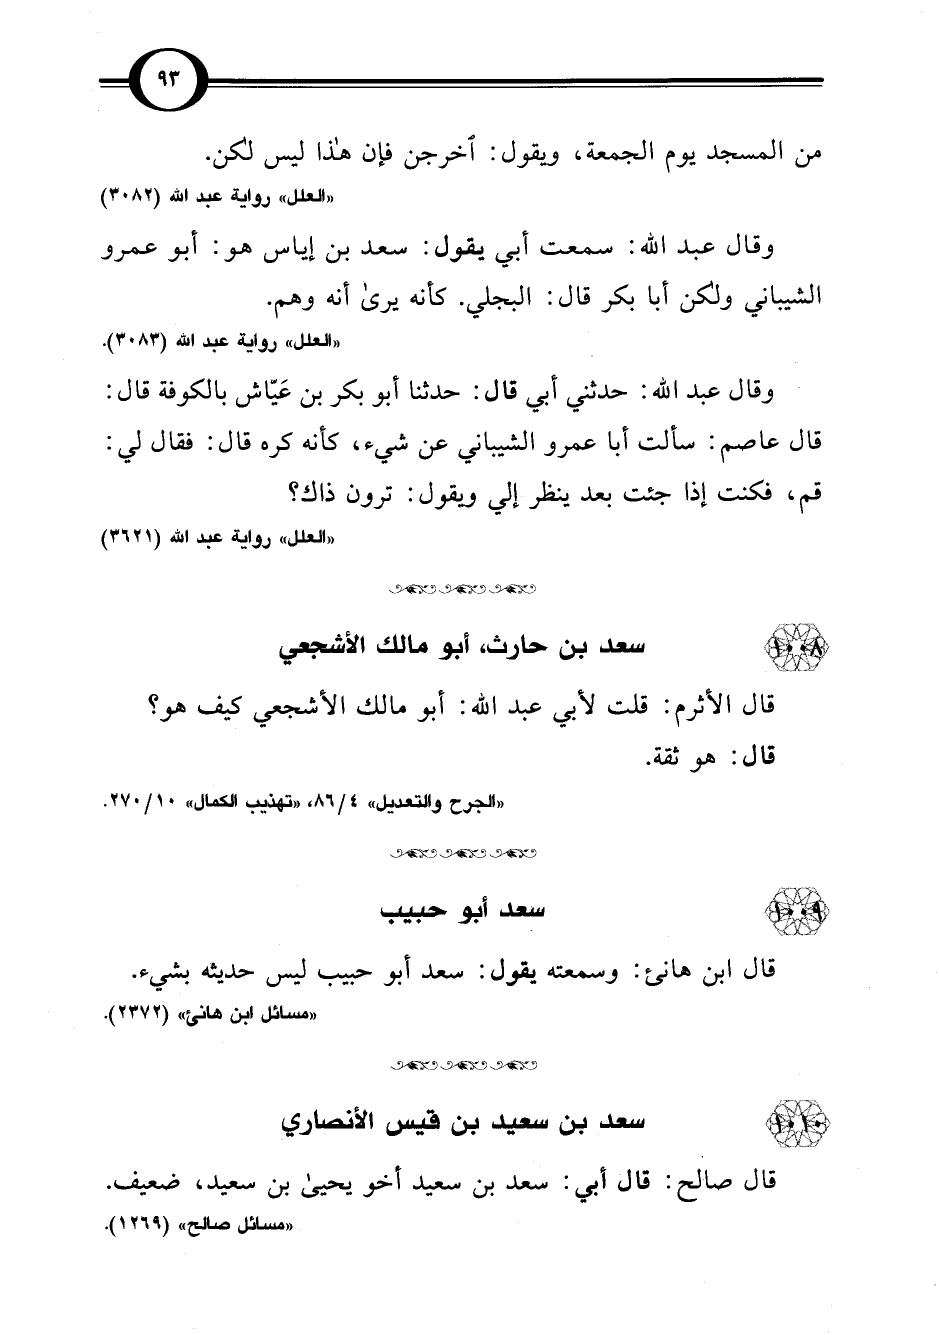 ٩٣
من المسجد يوم الجمعة، ويقول: ٱخرجن فإن هٰذا ليس لكن.
«العلل» رواية عبد الله (٣٠٨٢)
وقال عبد الله: سمعت أبي يقول: سعد بن إياس هو: أبو عمرو
الشيباني ولٰكن أبا بكر قال: البجلي. كأنه يرىٰ أنه وهم.
«العلل» رواية عبد الله (٣٠٨٣).
وقال عبد الله: حدثني أبي قال: حدثنا أبو بكر بن عَيّاش بالكوفة قال:
قال عاصم: سألت أبا عمرو الشيباني عن شيء، كأنه كره قال: فقال لي:
قم، فكنت إذا جئت بعد ينظر إلي ويقول: ترون ذاك؟
«العلل» رواية عبد الله (٣٦٢١)
١٠٠٨ سعد بن حارث، أبو مالك الأشجعي
قال الأثرم: قلت لأبي عبد الله: أبو مالك الأشجعي كيف هو؟
قال: هو ثقة.
«الجرح والتعديل» ٤/ ٨٦، «تهذيب الكمال» ١٠/ ٢٧٠.
١٠٠٩ سعد أبو حبيب
قال ابن هانئ: وسمعته يقول: سعد أبو حبيب ليس حديثه بشيء.
«مسائل ابن هانئ» (٢٣٧٢).
١٠١٠ سعد بن سعيد بن قيس الأنصاري
قال صالح: قال أبي: سعد بن سعيد أخو يحيىٰ بن سعيد، ضعيف.
«مسائل صالح» (١٢٦٩).